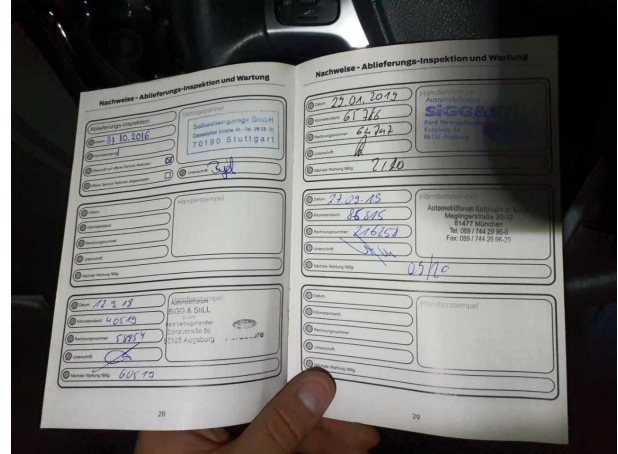 Nachweise - Ablieferungs-Inspektion und Wartung
Ablieferungs-Inspektion
Datum 31.10.2016
Vertragspartner
Schwabengarage GmbH
70190 Stuttgart
Unterschrift
Datum
Kilometerstand
Rechnungsnummer
Unterschrift
Nächste Wartung fällig
Händlerstempel
Datum 12 9 18
Kilometerstand 40519
Rechnungsnummer 58854
Unterschrift
Nächste Wartung fällig 60519
Händlerstempel
Automobilforum
SIGG & STILL
Ford Vertragshändler
Donaustraße 5c
Augsburg
28
Nachweise - Ablieferungs-Inspektion und Wartung
Datum 29.01.2019
Kilometerstand
Rechnungsnummer
Unterschrift
Nächste Wartung fällig
Händlerstempel
Automobilforum
SIGG & STILL
Augsburg
Datum 27.09.19
Kilometerstand 86815
Rechnungsnummer 216258
Unterschrift
Nächste Wartung fällig 09/20
Händlerstempel
Meglingerstraße 30-32
81477 München
Tel: 089 / 744 29 96-0
Fax: 089 / 744 29 96-29
Datum
Kilometerstand
Rechnungsnummer
Unterschrift
Nächste Wartung fällig
Händlerstempel
29